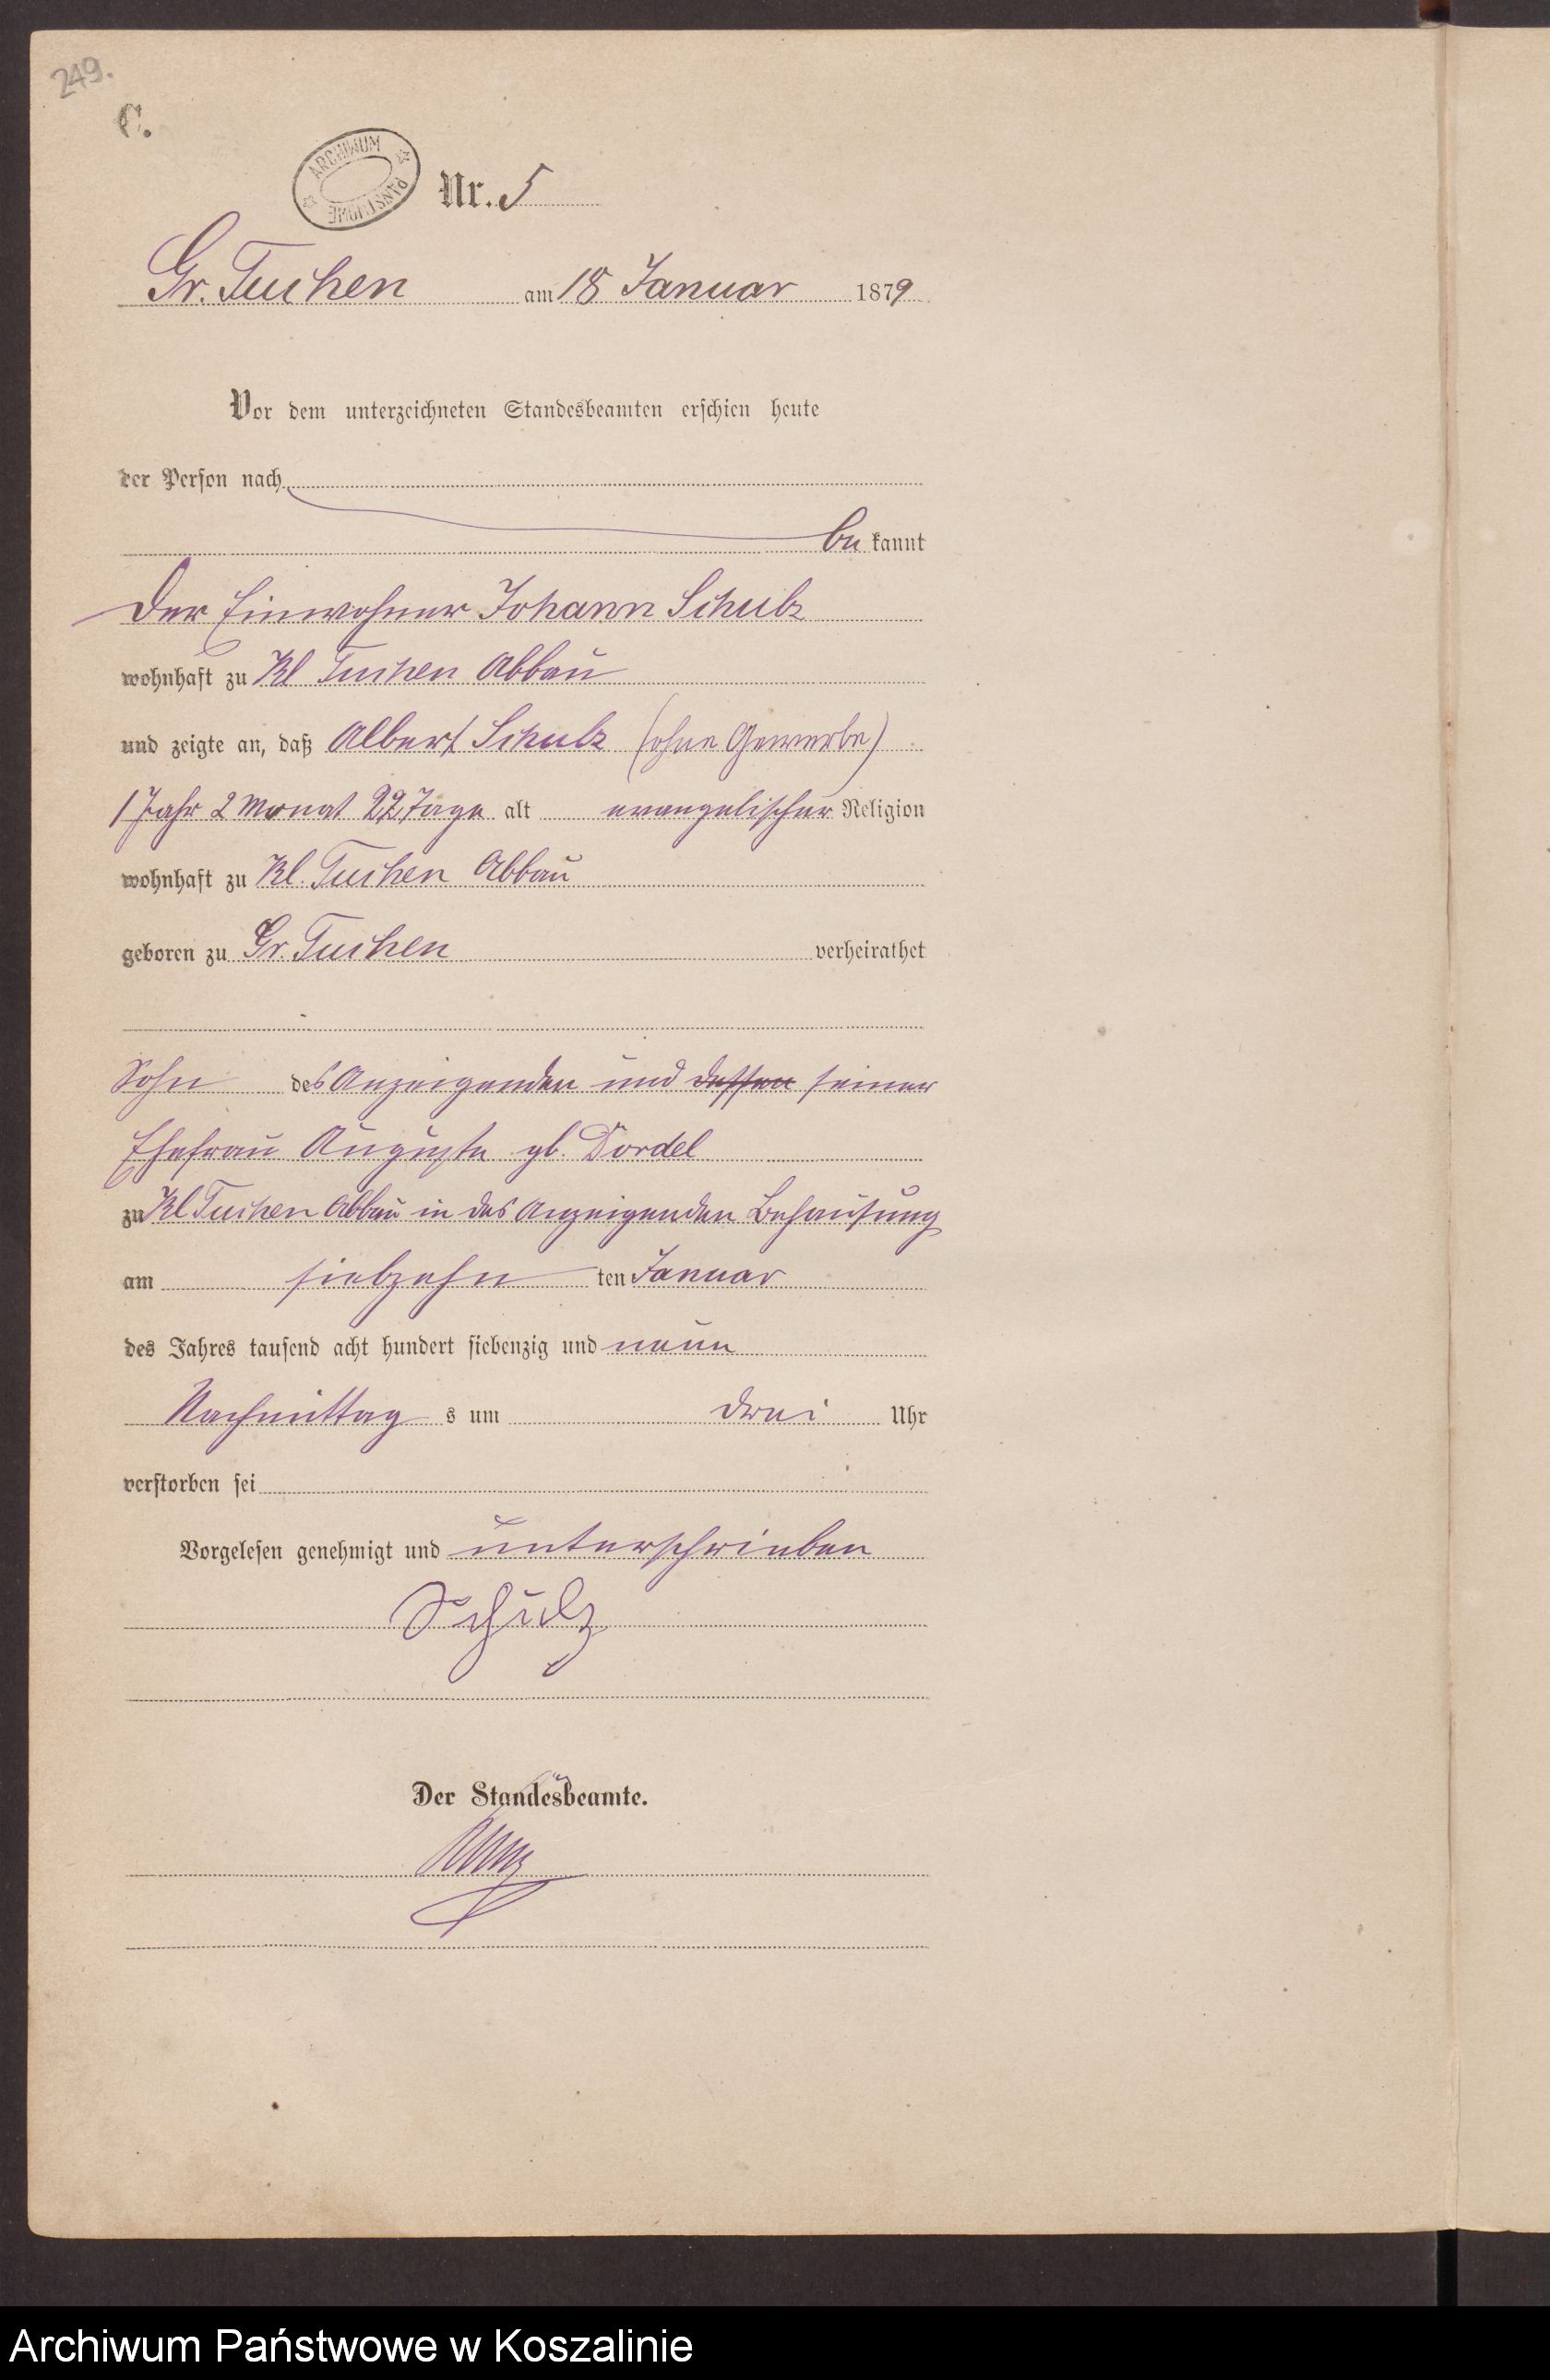 249.
C.
ARCHIWUM PAŃSTWOWE
Nr. 5
Gr. Tuchen am 18 Januar 1879
Vor dem unterzeichneten Standesbeamten erschien heute
der Person nach
be kannt
Der Einwohner Johann Schulz
wohnhaft zu Kl Tuchen Abbau
und zeigte an, daß Albert Schulz (ohne Gewerbe)
1 Jahr 2 Monat 22 Tage alt evangelischer Religion
wohnhaft zu Kl. Tuchen Abbau
geboren zu Gr. Tuchen verheirathet
Sohn des Anzeigenden und dessen seiner
Ehefrau Auguste gb. Dordel
zu Kl Tuchen Abbau in des Anzeigenden Behausung
am siebzehn ten Januar
des Jahres tausend acht hundert siebenzig und neun
Nachmittag s um drei Uhr
verstorben sei
Vorgelesen genehmigt und unterschrieben
Schulz
Der Standesbeamte.
Archiwum Państwowe w Koszalinie